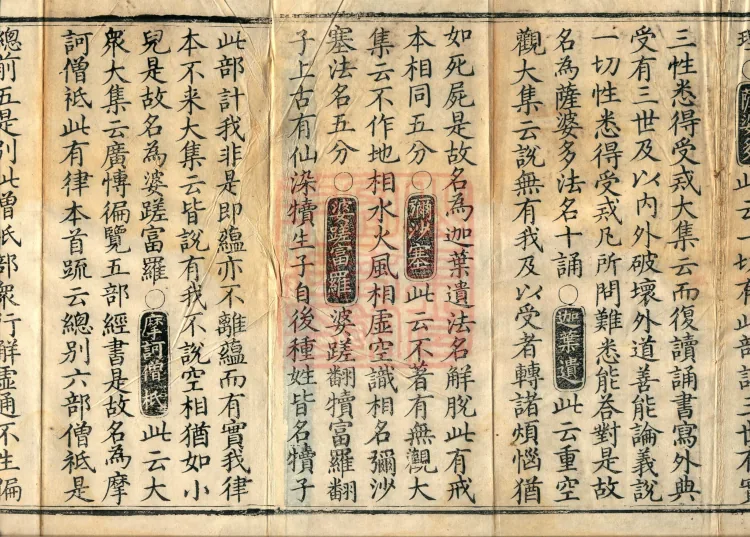 薩婆多此云一切有此部計三世有實
三性悉得受戒大集云而復讀誦書寫外典
受有三世及以內外破壞外道善能論義說
一切性悉得受戒凡所問難悉能答對是故
名為薩婆多法名十誦〇迦葉遺此云重空
觀大集云說無有我及以受者轉諸煩惱猶
如死屍是故名為迦葉遺法名解脫此有戒
本相同五分〇彌沙塞此云不著有無觀大
集云不作地相水火風相虛空識相名彌沙
塞法名五分〇婆蹉富羅婆蹉翻犢富羅翻
子上古有仙染犢生子自後種姓皆名犢子
此部計我非是即蘊亦不離蘊而有實我律
本不来大集云皆說有我不說空相猶如小
兒是故名為婆蹉富羅〇摩訶僧祇此云大
衆大集云廣愽徧覽五部經書是故名為摩
訶僧祇此有律本首䟽云總别六部僧祇是
總前五是別此僧祇部衆行解虛通不生偏